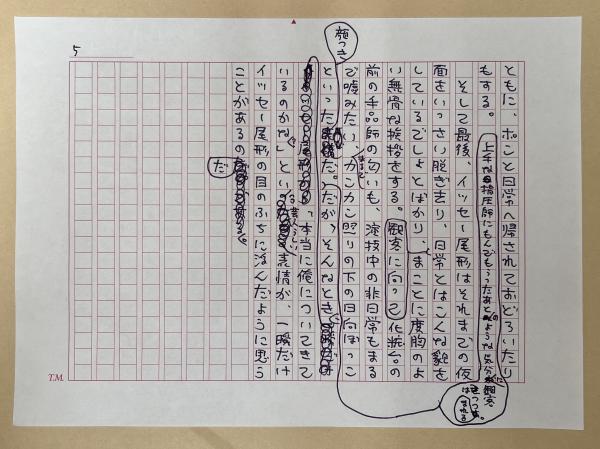 5
ともに、ポンと日常へ帰されておどろいたり
もする。
上手な指圧師にもんでもらったあとのような気分に観客はつつまれる。
そして最後、イッセー尾形はそれまでの仮
面をいっさい脱ぎ去り、日常とはこんな貌を
しているでしょとばかり、まことに度胸のよ
い無骨な挨拶をする。観客に向って化粧台の
前の手品師の匂いも、演技中の非日常もまる
で嘘みたい、まるでカンカン照りの下の日向ぼっこ
顔つき
といった だ。だが、そんなとき
「本当に俺についてきて
いるのかな」という芸人らしい表情が、一瞬だけ
イッセー尾形の目のふちに浮んだように思う
ことがあるのだ
T.M.